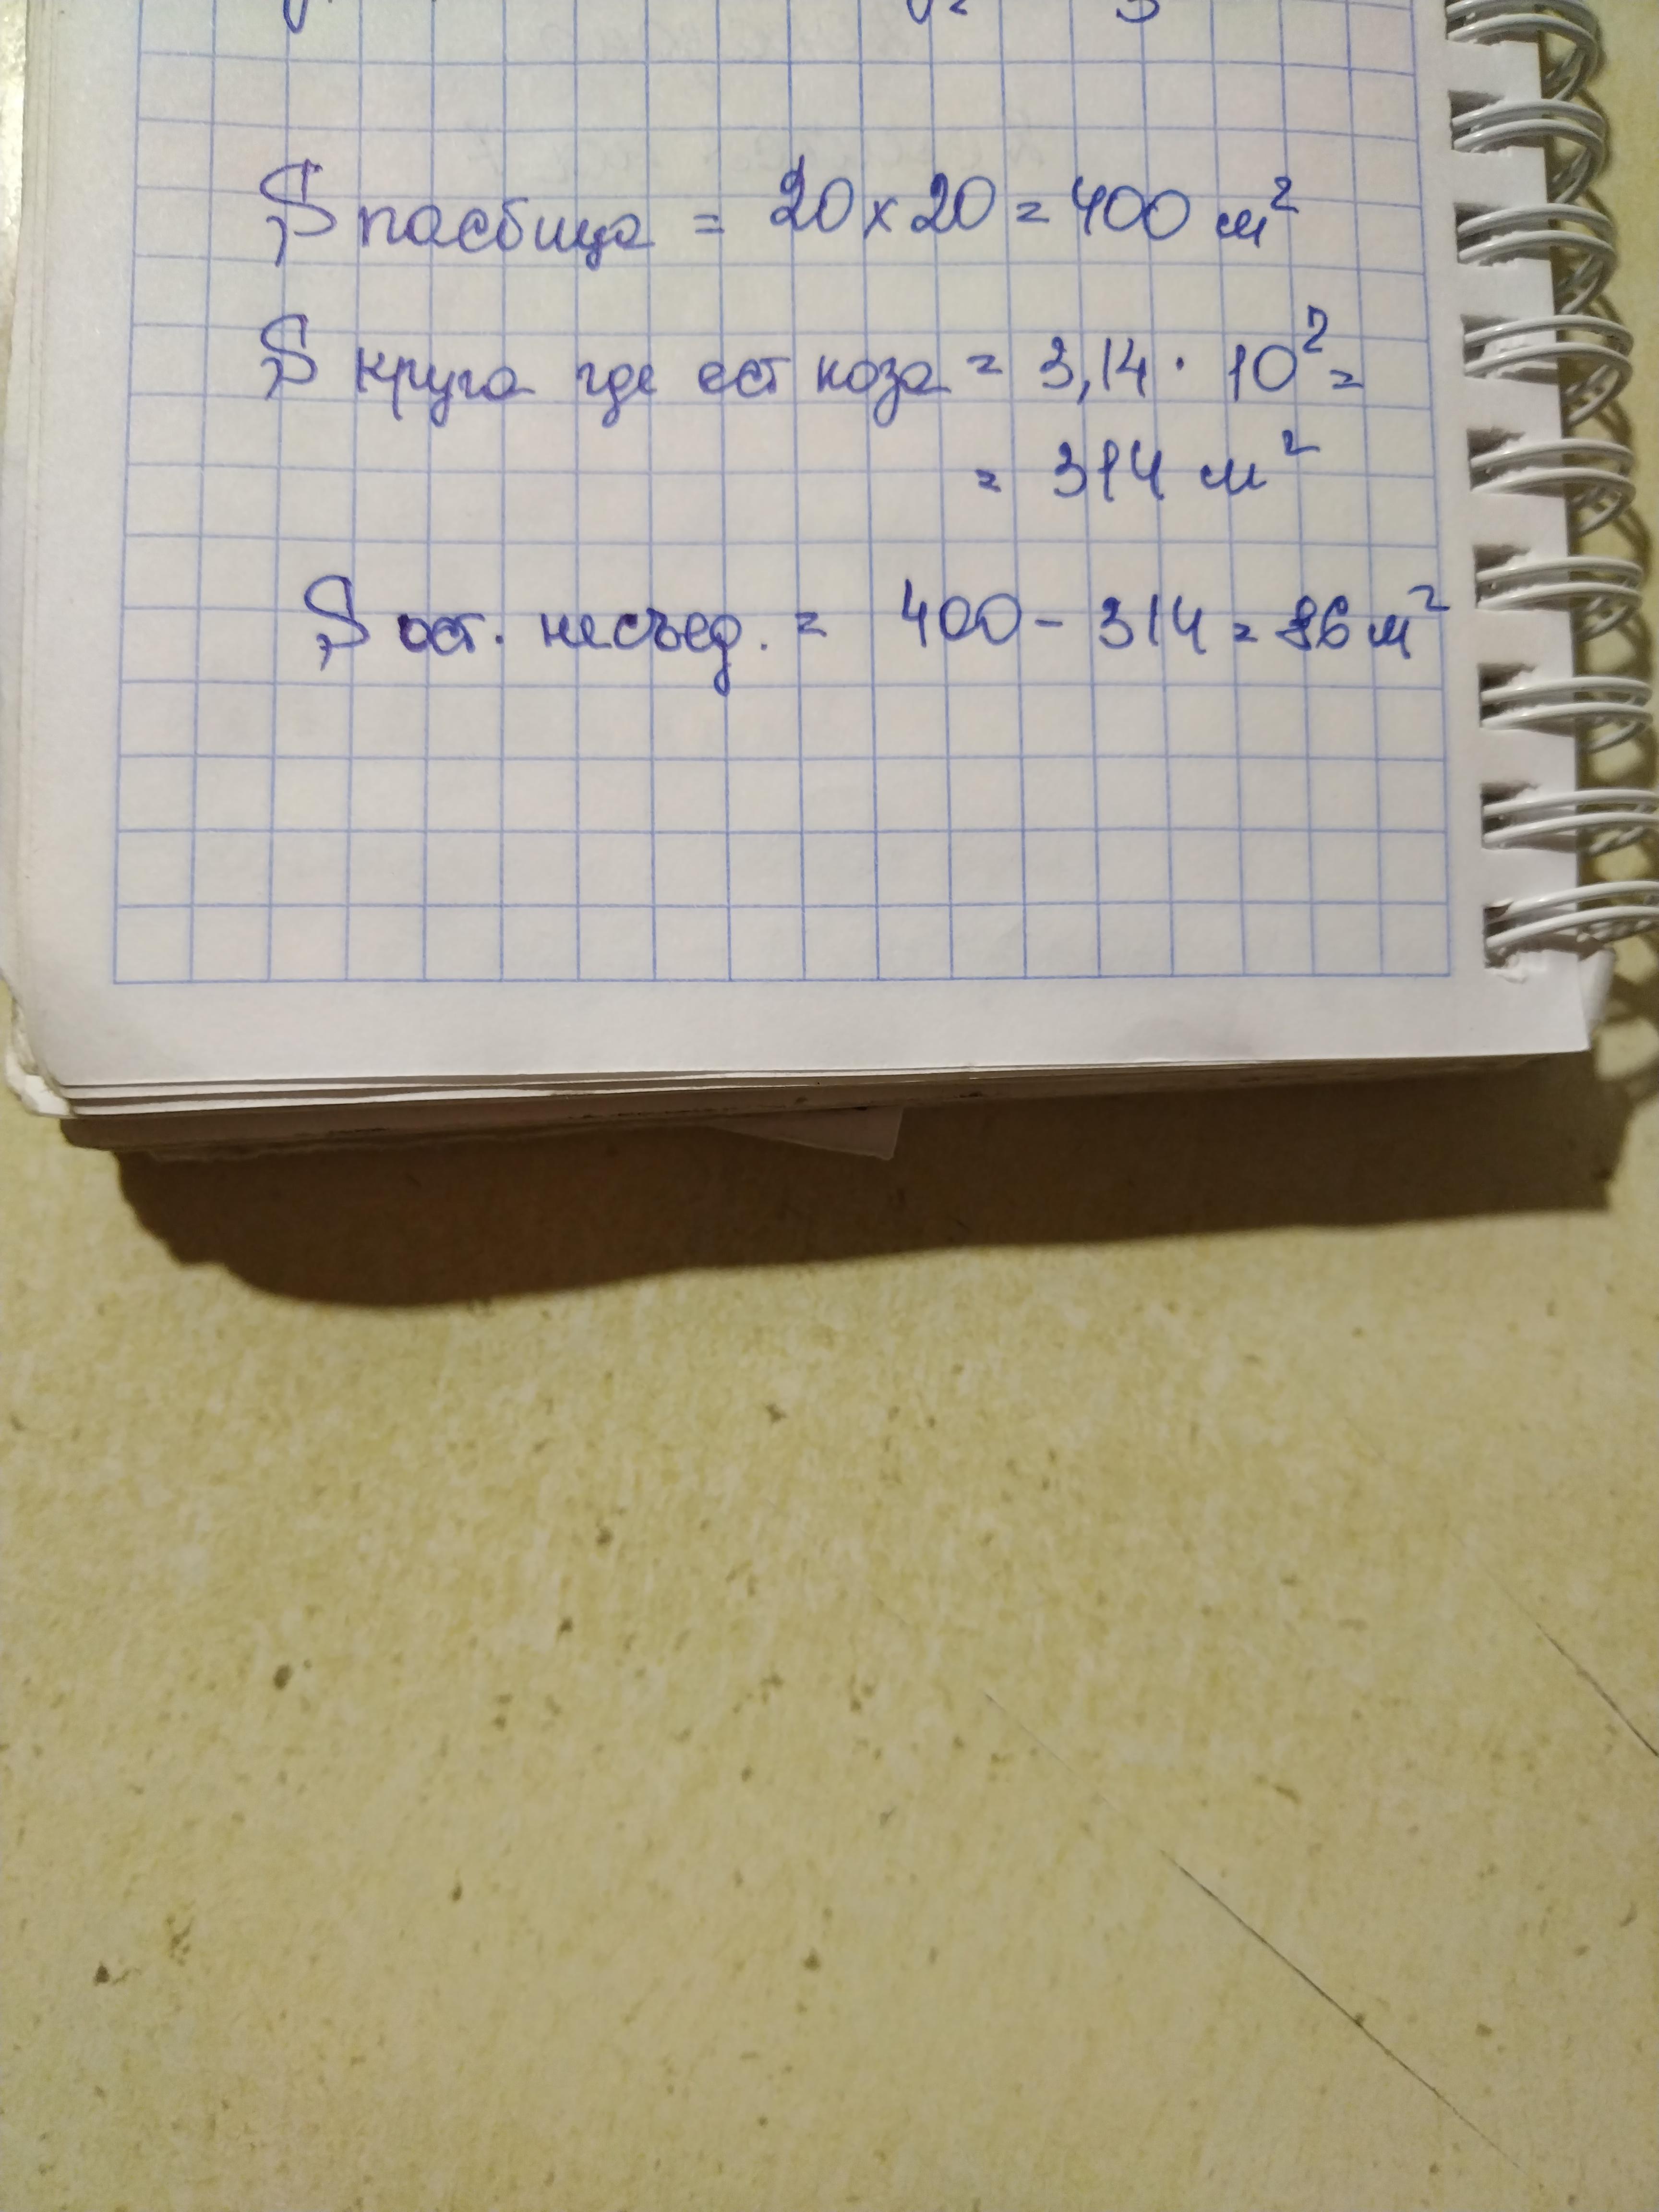 S пасбища = 20 х 20 = 400 м²
S круга где ест коза = 3,14 · 10² =
= 314 м²
S ост. несъед. = 400 - 314 = 86 м²